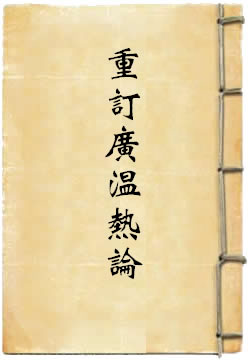 重訂廣温熱論